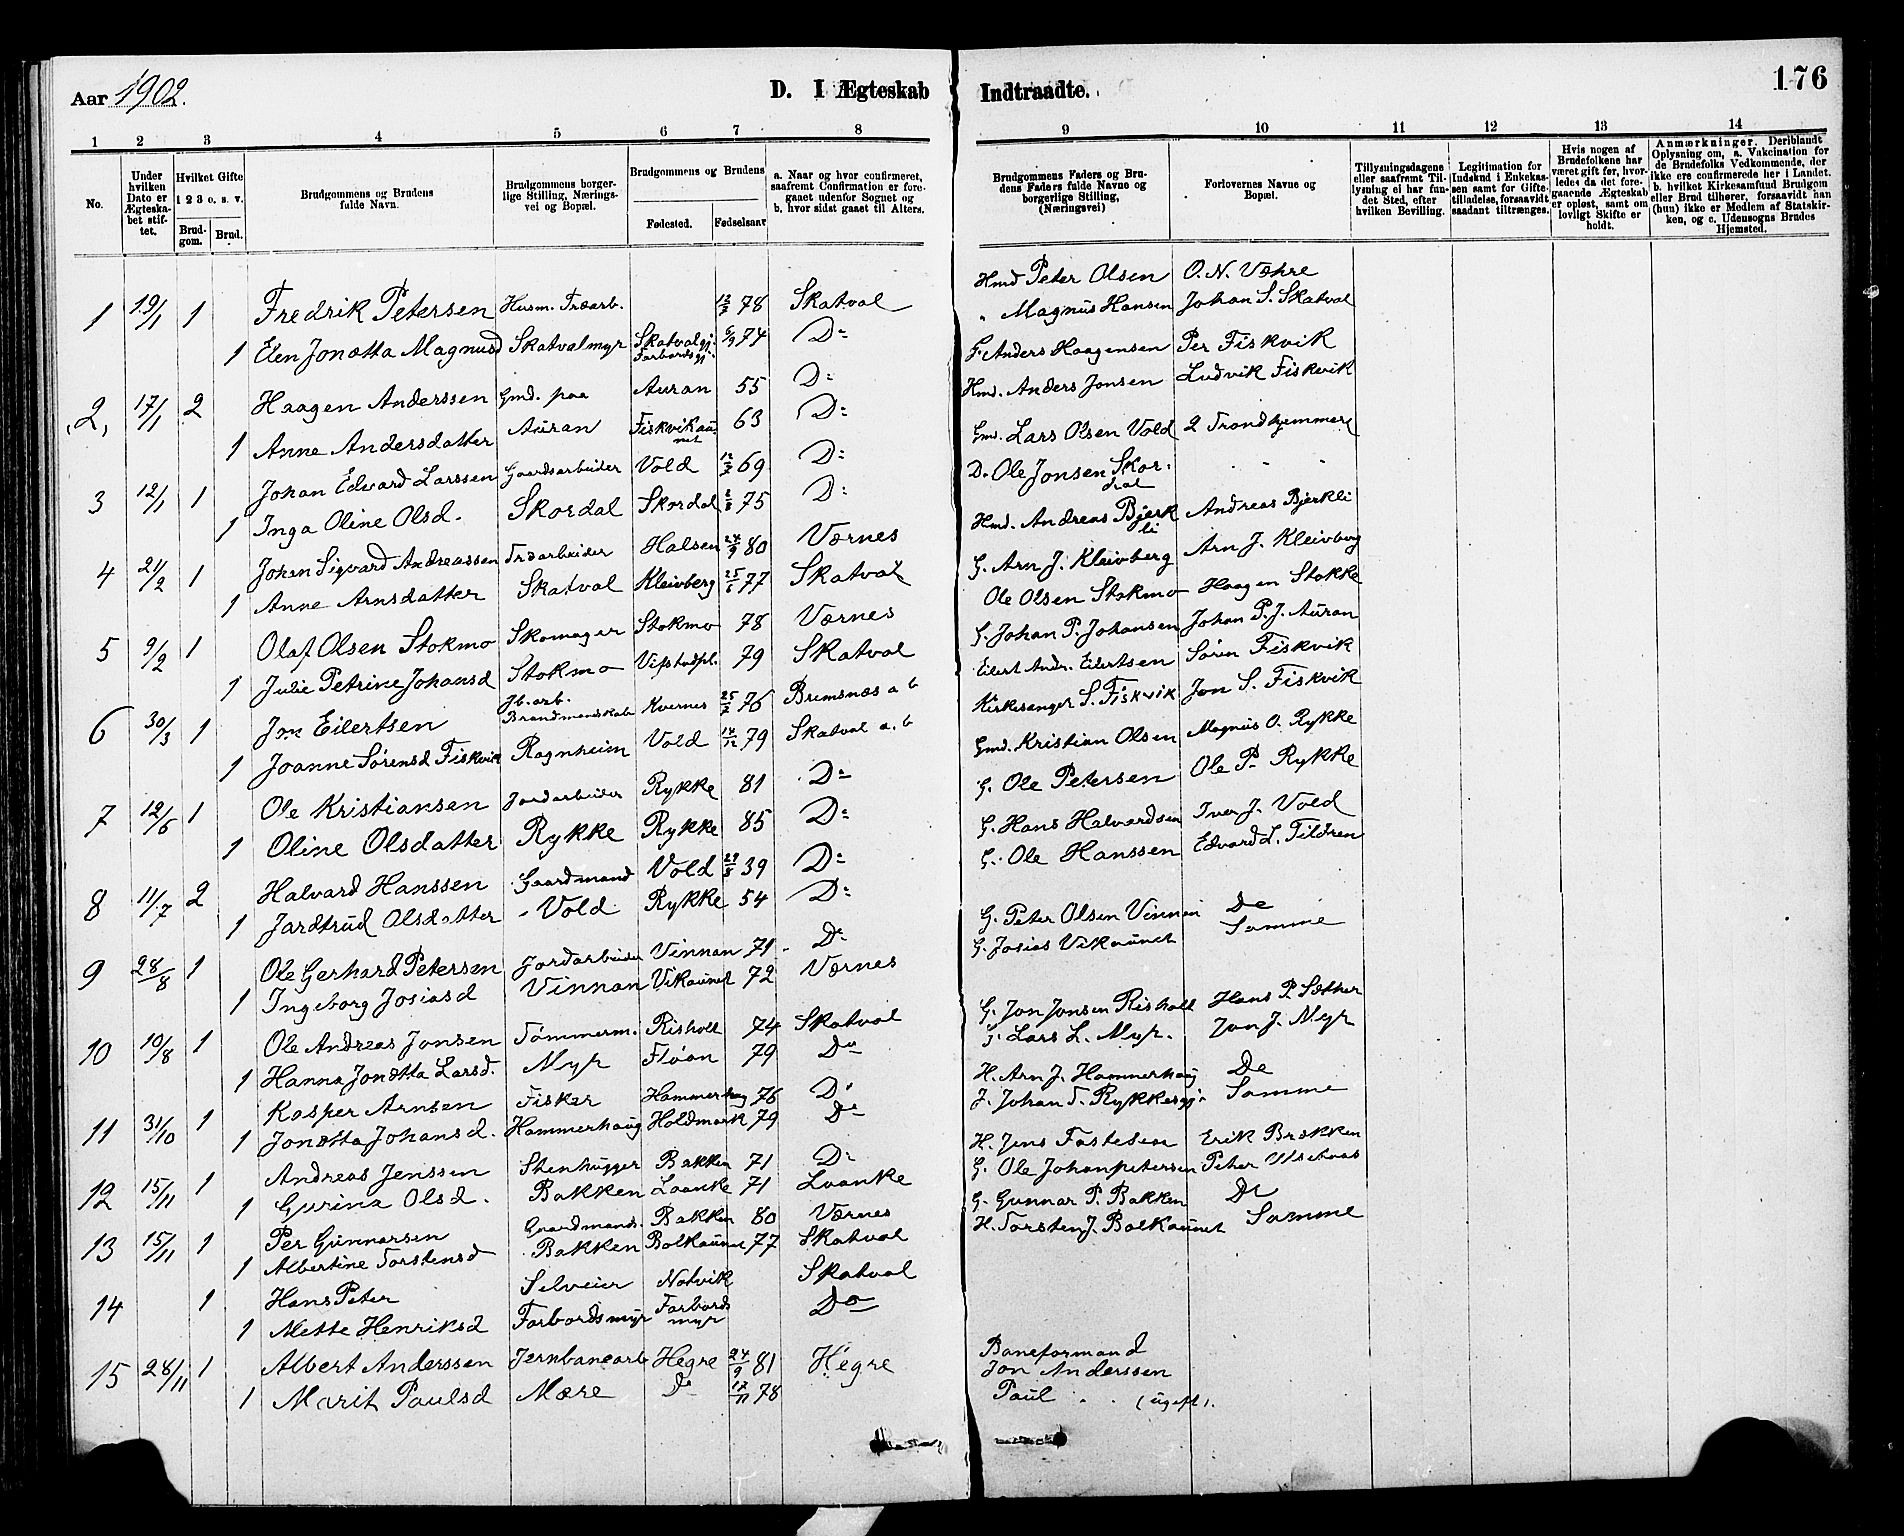 Aar 1902.
D. I Ægteskab Indtraadte.
176
1 2 3 4 5 6 7 8 9 10 11 12 13 14
No.
Under hvilken Dato er Ægteskabet stiftet.
Hvilket Gifte
1 2 3 o. s. v.
Brudgom. Brud.
Brudgommens og Brudens fulde Navn.
Brudgommens borgerlige Stilling, Næringsvei og Bopæl.
Brudgommens og Brudens
Fødested. Fødselsaar
a. Naar og hvor confirmeret, saafremt Confirmation er foregaaet udenfor Sognet og b. hvor sidst gaaet til Alters.
Brudgommens Faders og Brudens Faders fulde Navne og borgerlige Stilling, (Næringsvei)
Forlovernes Navne og Bopæl.
Tillysningsdagene eller saafremt Tillysning ei har fundet Sted, efter hvilken Bevilling.
Legitimation for Indskud i Enkekassen samt for Giftetilladelse, forsaavidt saadant tiltrænges.
Hvis nogen af Brudefolkene har været gift før, hvorledes da det foregaaende Ægteskab er opløst, samt om lovligt Skifte er holdt.
Anmærkninger. Deriblandt Oplysning om, a. Vakcination for de Brudefolks Vedkommende, der ikke ere confirmerede her i Landet. b. hvilket Kirkesamfund Brudgom eller Brud tilhører, forsaavidt han (hun) ikke er Medlem af Statskirken, og c. Udensogns Brudes Hjemsted.
1 19/1 1 Fredrik Petersen Husm. Træarb. 78 Skatval Hmd Peter Olsen O. N. Væhre
1 Elen Jonetta Magnusd Skatvalmyr Skatvalgj. Forbordsgj. 5/9 74 Do " Magnus Hansen Johan S. Skatval
2, 17/1 2 Haagen Anderssen Gmd. paa Auran 55 Do G. Anders Haagensen Per Fiskvik
1 Anne Andersdatter Auran Fiskvikaunet 63 Do Hmd. Anders Jonsen Ludvik Fiskvik
3 12/1 1 Johan Edvard Larssen Gaardsarbeider Vold 69 Do Gmd. Lars Olsen Vold 2 Trondhjemmere
1 Inga Oline Olsd. Skordal Skordal 75 Do D. Ole Jonsen Skordal " "
4 21/2 1 Johan Sigvard Andreassen Træarbeider Halsen 24/9 80 Værnes Hmd. Andreas Bjerkli Andreas Bjerkli
1 Anne Arnsdatter Skatval Kleivberg 77 Skatval G. Arn J. Kleivberg Arn J. Kleivberg
5 9/2 1 Olaf Olsen Stokmo Skomager Stokmo 78 Værnes Ole Olsen Stokmo Haagen Stokke
1 Julie Petrine Johansd Stokmo Vifstadpl. 79 Skatval G. Johan P. Johansen Johan P. J. Auran
6 30/3 1 Jon Eilertsen Jb. arb. Brandmandskab Kvernes 76 Bremsnæs a b Eilert Andr. Eilertsen Søren Fiskvik
1 Joanne Sørensd Fiskvik Ragnheim Vold 14/12 79 Skatval a. b Kirkesanger S. Fiskvik Jon S. Fiskvik
7 12/6 1 Ole Kristiansen Jordarbeider Rykke 81 Do Gmd. Kristian Olsen Magnus O. Rykke
1 Oline Olsdatter Rykke Rykke 85 Do G. Ole Petersen Ole P. Rykke
8 11/7 2 Halvard Hanssen Gaardmand Vold 39 Do G. Hans Halvardsen Iver J. Vold
1 Jardtrud Olsdatter Vold Rykke 54 Do G. Ole Hanssen Edvard L. Tildren
9 28/8 1 Ole Gerhard Petersen Jordarbeider Vinnan 71 Do G. Peter Olsen Vinnan De
1 Ingeborg Josiasd Vinnan Vikaunet 72 Værnes G. Josias Vikaunet Samme
10 10/8 1 Ole Andreas Jonsen Tømmerm. Risholt 74 Skatval G. Jon Jonsen Risholt Hans P. Sæther
1 Hanna Jonetta Larsd. Myr Fløan 79 Do G. Lars L. Myr. Jon J. Myr
11 31/10 1 Kasper Arnsen Fisker Hammerhaug 76 Do H. Arn J. Hammerhaug De
1 Jonetta Johansd. Hammerhaug Holdmark 79 Do J. Johan T. Rykkesgj. Samme
12 15/11 1 Andreas Jenssen Stenhugger Bakken 71 Do H. Jens Fastesen Erik Brækken
1 Gurina Olsd. Bakken Laanke 71 Laanke G. Ole Johanpetersen Peter
13 15/11 1 Per Gunnarsen Gaardmands. Bakken 80 Værnes G. Gunnar P. Bakken De
1 Albertine Torstensd Bakken Balkaunet 77 Skatval H. Torsten J. Balkaunet Samme
14 1 Hans Peter Selveier Natvik Skatval
1 Mette Henriksd Forbordsmyr Forbordsmyr Do
15 28/11 1 Albert Anderssen Jernbanearb Hegre 24/9 81 Hegre Baneformand Jon Anderssen
1 Marit Paulsd Mære Do 17/11 78 Paul " " (ugift).